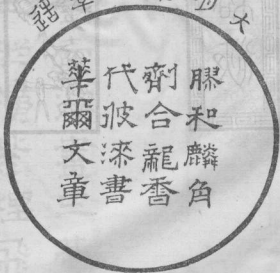 膠和麟角
劑合龍香
代彼漆書
華爾文章